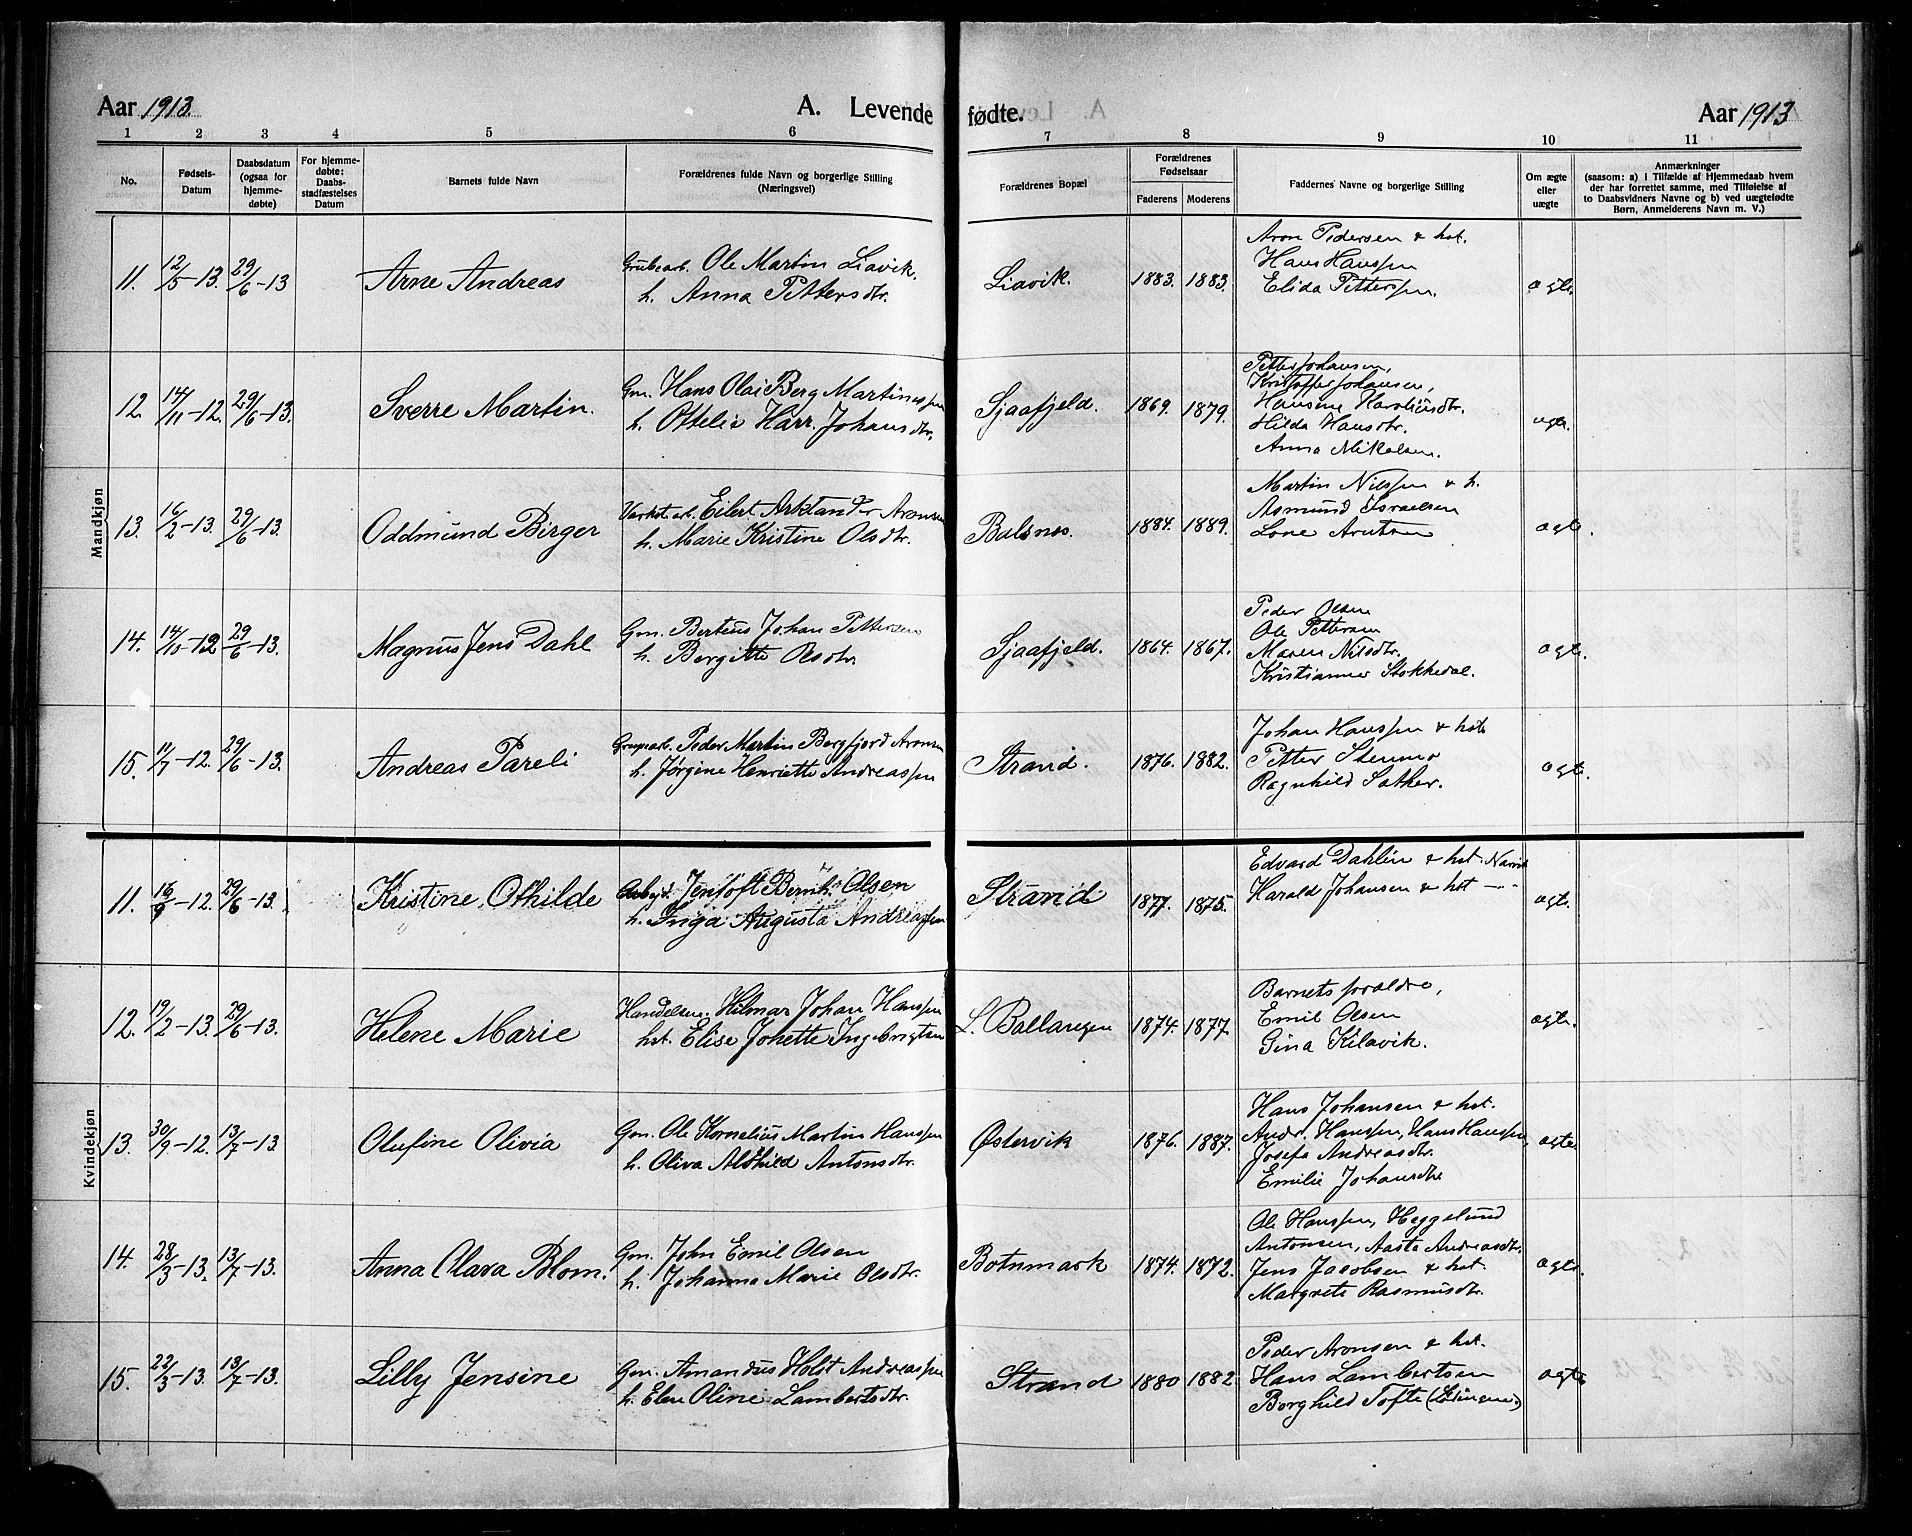 Aar 1913. A. Levende fødte. Aar 1913
1 2 3 4 5 6 7 8 9 10 11
No.
Fødsels-
Datum
Daabsdatum
(ogsaa for
hjemme-
døbte)
For hjemme-
døbte:
Daabs-
stadfæstelses
Datum
Barnets fulde Navn
Forældrenes fulde Navn og borgerlige Stilling
(Næringsvei)
Forældrenes Bopæl
Forældrenes
Fødselsaar
Faderens Moderens
Faddernes Navne og borgerlige Stilling
Om ægte
eller
uægte
Anmærkninger
(saasom: a) i Tilfælde af Hjemmedaab hvem
der har forrettet samme, med Tilføielse af
to Daabsvidners Navne og b) ved uægtefødte
Børn, Anmelderens Navn m. V.)
Mandkjøn
11. 12/5-13. 29/6-13 Arne Andreas
Grubearb. Ole Martin Liavik.
h. Anna Pettersdtr.
Liavik. 1883. 1883.
Aron Pedersen & hst.
Hans Hanssen
Elida Petterssen.
ægte.
12. 14/11-12. 29/6-13. Sverre Martin.
Gm. Hans Olai Berg Martinussen
h. Ottelie Harr. Johansdtr.
Sjaafjeld. 1869. 1879.
Petter Johansen,
Kristoffer Johansen,
Hansine Haraldsdtr.
Hilda Hansdtr.
Anna Mikalsen.
ægte.
13. 16/2-13. 29/6-13. Oddmund Birger
Varkst. arb. Eilert Arktander Aronsen
h. Marie Kristine Olsdtr.
Balsnes. 1884. 1889.
Martin Nilssen & h.
Asmund Israelsen
Lone Arntsen
ægte.
14. 14/10-12 29/6-13. Magnus Jens Dahl
Gm. Berteus Johan Pettersen
h. Bergitte Olsdtr.
Sjaafjeld. 1864. 1867.
Peder Olsen
Ole Pettersen
Maren Nilsdtr.
Kristianne Stokkedal.
ægte.
15. 11/7-12. 29/6-13. Andreas Pareli
Grupearb. Peder Martin Bergfjord Aronsen
h. Jørgine Henriette Andreassen
Strand. 1876. 1882.
Johan Hanssen & hst
Petter Stenmo
Ragnhild Sæther.
ægte.
Kvindekjøn
11. 16/9-12. 29/6-13. Kristine Othilde
Arbeid. Jentoft Bernh. Olsen
h. Inga Augusta Andreassen
Strand 1877. 1875.
Edvard Dahlin & hst. Narvik
Harald Johansen & hst —"—
ægte.
12. 19/2-13. 29/6-13. Helene Marie
Handelsm. Hilmar Johan Hanssen
hst. Elise Johette Ingebrigtsen
L. Ballangen 1874. 1877.
Barnets forældre,
Emil Olsen
Gina Kilavik.
ægte.
13. 30/9-12. 13/7-13. Olufine Olivia
Gm. Ole Kornelius Martin Hanssen
h. Oliva Alfhild Antonsdtr.
Østervik 1876. 1887.
Hans Johansen & hst.
Andr. Hanssen, Hans Hanssen,
Josefa Andreasdtr.
Emilie Johansdtr
ægte
14. 28/3-13. 13/7-13. Anna Clara Blom.
Gm. John Emil Olsen
h. Johanna Marie Olsdtr.
Botnmark 1874. 1872.
Ole Hanssen, Heggelund
Antonsen, Aasta Andreasdtr.
Jens Jacobsen & hst.
Margrete Rasmusdtr.
ægte.
15. 22/3-13. 13/7-13. Lilly Jensine
Gm. Amandus Holst Andreassen
h. Elen Oline Lambertsdtr.
Strand 1880 1882.
Peder Aronsen & hst.
Hans Lambertsen
Borghild Tofte (Lødingen)
ægte